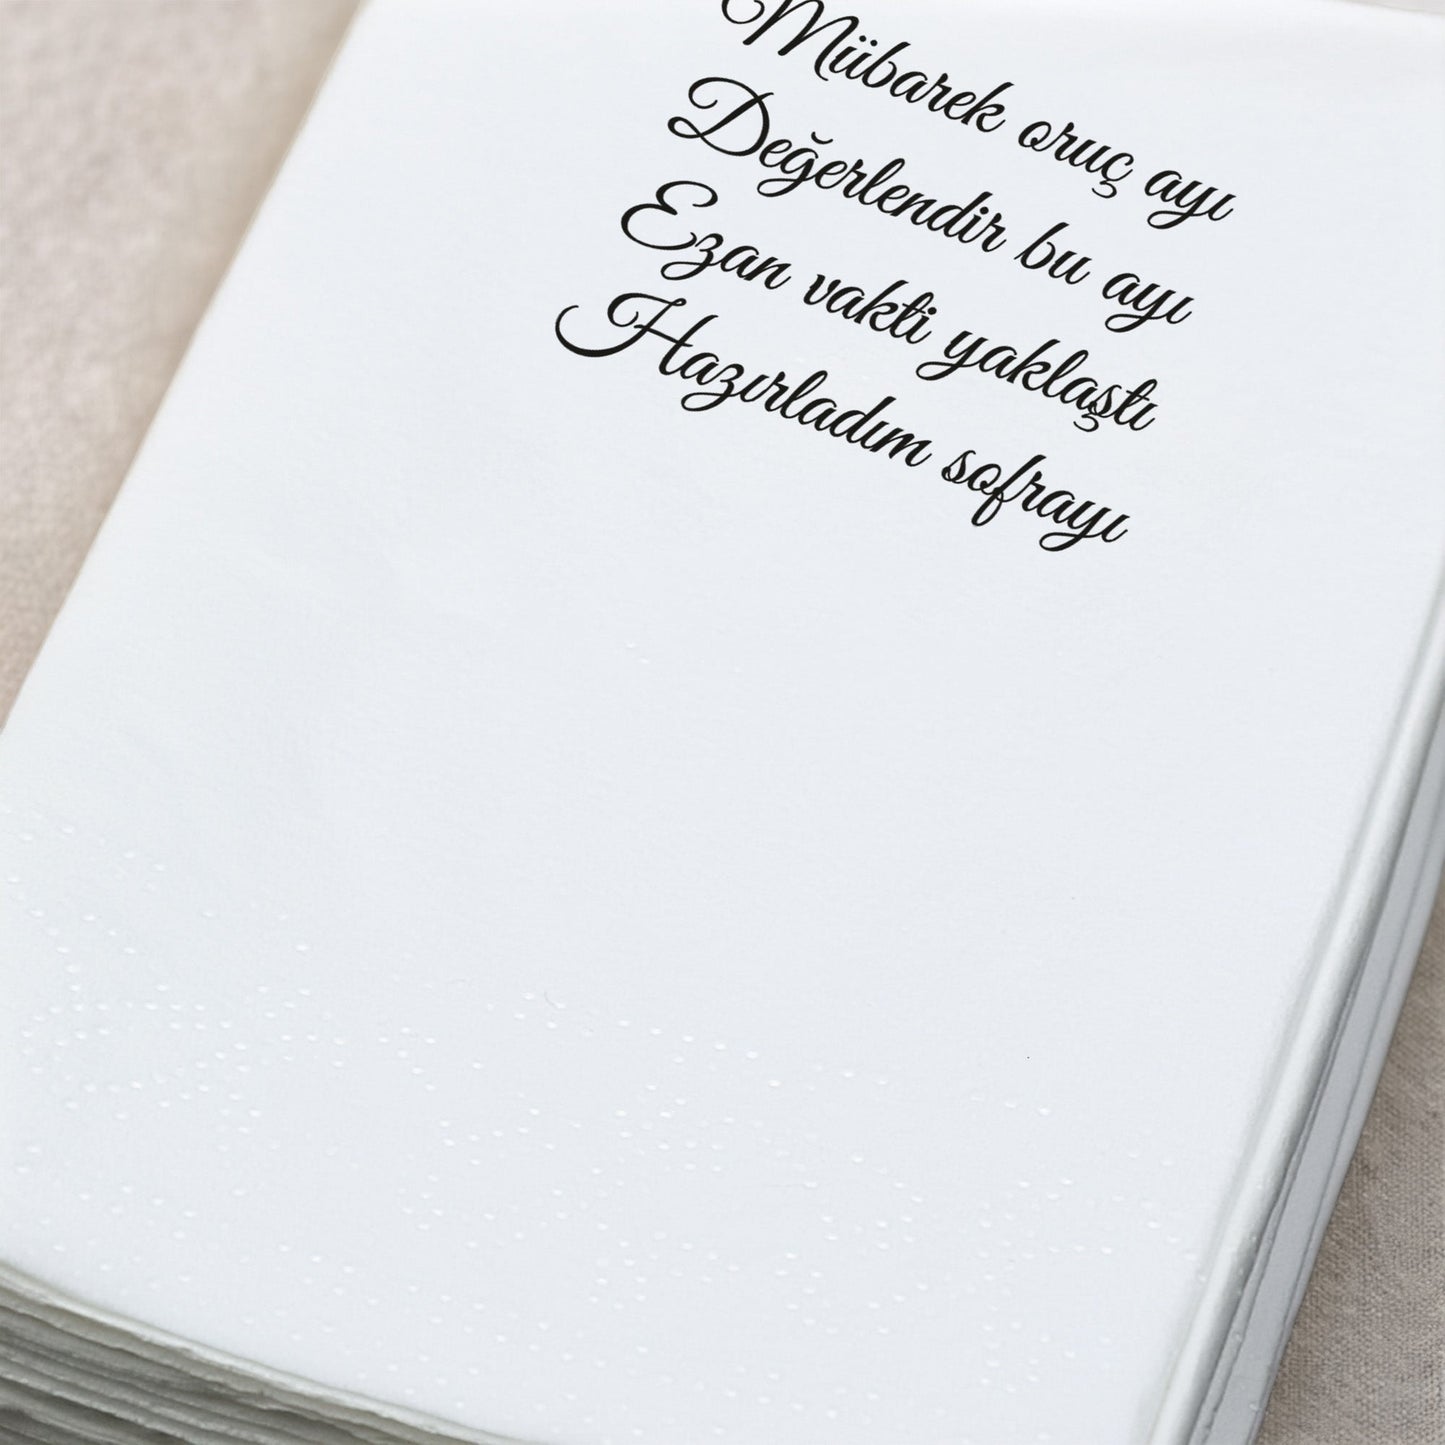 Mübarek oruç ayı
Değerlendir bu ayı
Ezan vakti yaklaştı
Hazırladım sofrayı